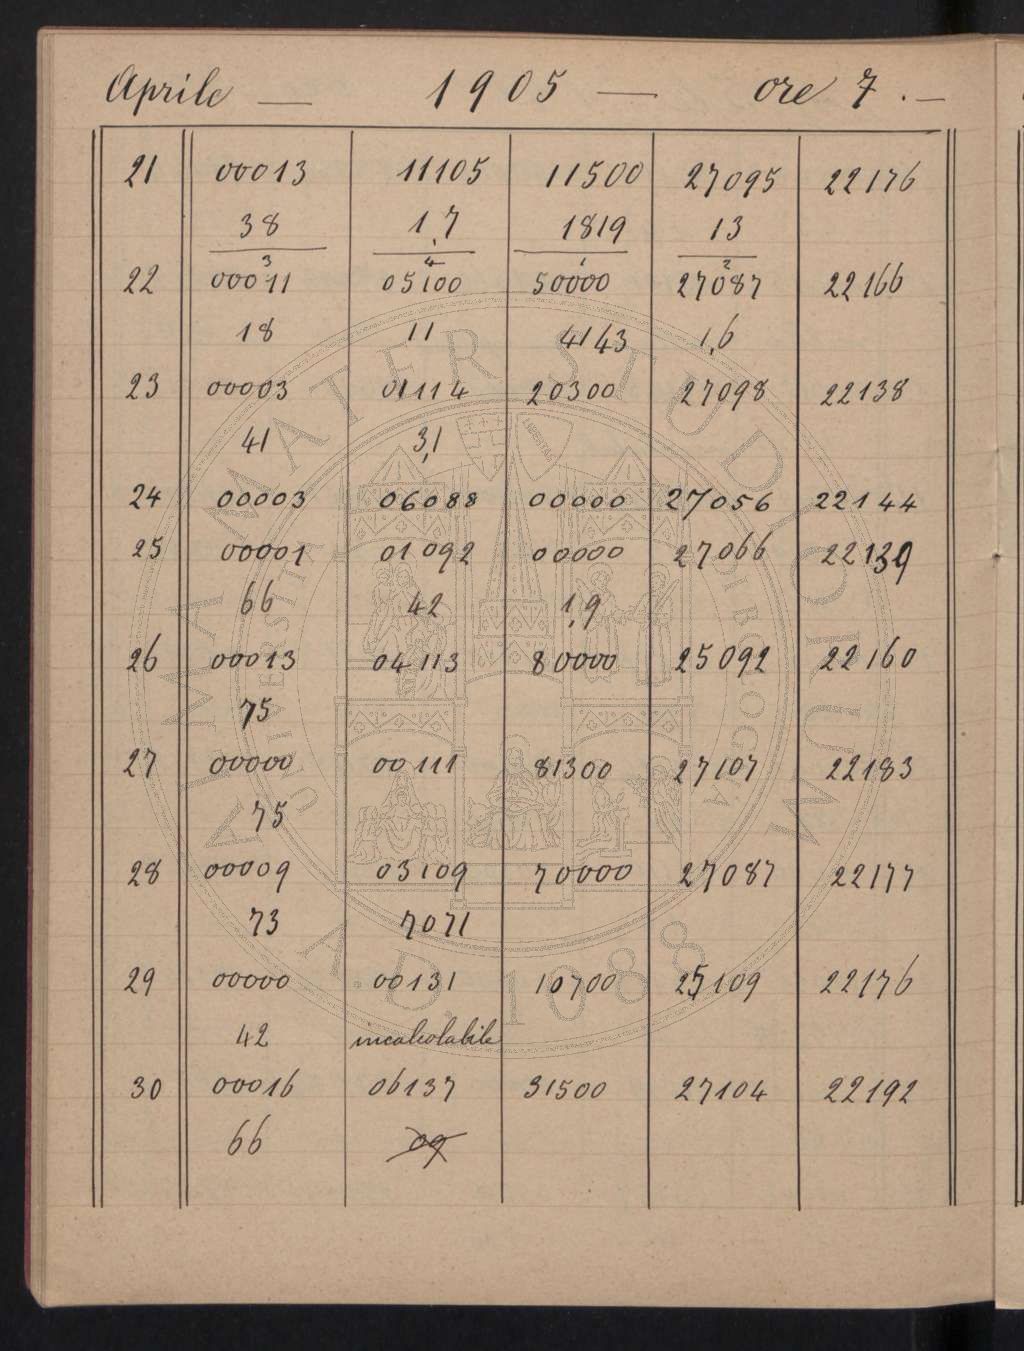 Aprile — 1905 — ore 7. —
21 00013 11105 11500 27095 22176
38 1,7 1819 13
3 4 1 2
22 00011 05100 50000 27087 22166
18 11 4143 1,6
23 00003 01114 20300 27098 22138
41 3,1
24 00003 06088 00000 27056 22144
25 00001 01092 00000 27066 22139
66 42 1,9
26 00013 04113 80000 25092 22160
75
27 00000 00111 81300 27107 22183
75
28 00009 03109 70000 27087 22177
73 7071
29 00000 00131 10700 25109 22176
42 incalcolabile
30 00016 06137 31500 27104 22192
66 09
ALMA MATER STUDIORUM
A.D. 1088
UNIVERSITÀ DI BOLOGNA
LIBERTAS